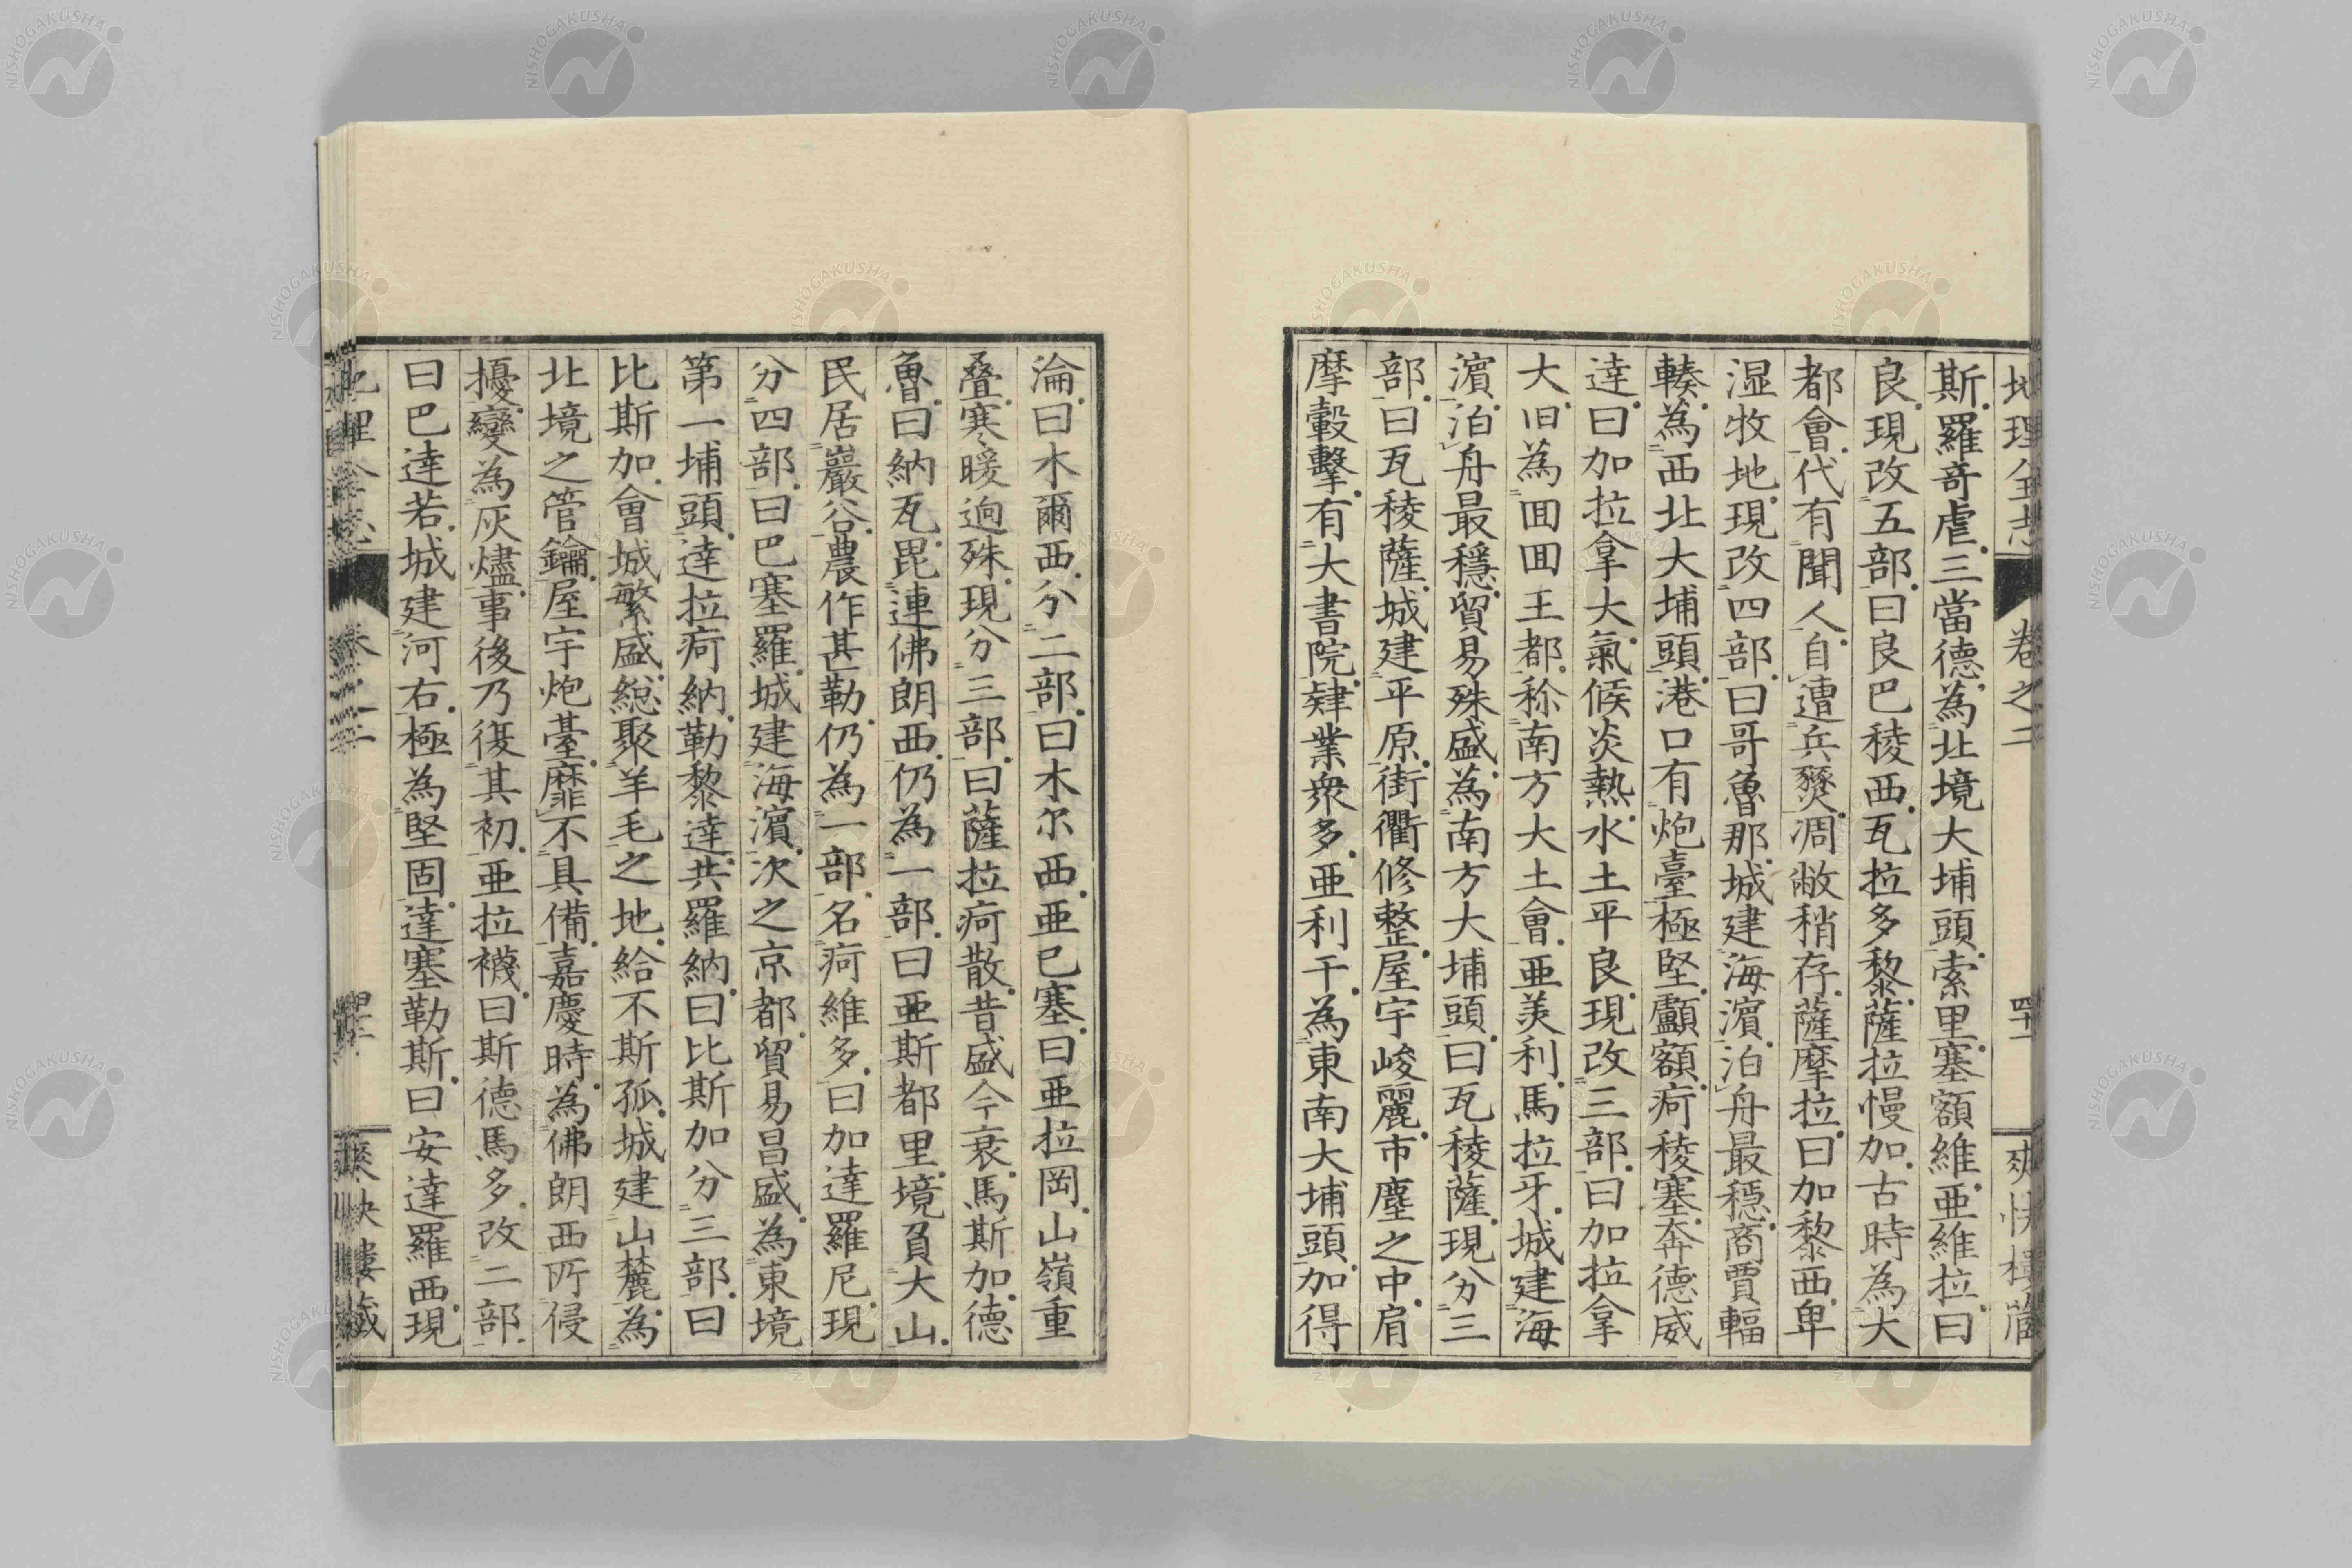 地理全志 卷之二 爽快樓藏
斯羅哥虐三當德為北境大埔頭索里塞額維亜維拉曰
良現改五部曰良巴稜西瓦拉多黎薩拉慢加古時為大
都會代有聞人自遭兵燹凋敝稍存薩摩拉曰加黎西卑
湿牧地現改四部曰哥魯那城建海濵泊舟最穏商賈輻
輳為西北大埔頭港口有炮臺極堅顱額疴稜塞奔德威
達曰加拉拿大氣候炎熱水土平良現改三部曰加拉拿
大旧為囬囬王都称南方大土會亜美利馬拉牙城建海
濵泊舟最穏貿易殊盛為南方大埔頭曰瓦稜薩現分三
部曰瓦稜薩城建平原街衢修整屋宇峻麗市塵之中肩
摩轂擊有大書院肄業衆多亜利干為東南大埔頭加得
淪曰木爾西分二部曰木尔西亜巳塞曰亜拉岡山嶺重
叠寒暖逈殊現分三部曰薩拉疴散昔盛今衰馬斯加德
魯曰納瓦毘連佛朗西仍為一部曰亜斯都里境負大山
民居巖谷農作甚勒仍為一部名疴維多曰加達羅尼現
分四部曰巴塞羅城建海濵次之京都貿易昌盛為東境
第一埔頭達拉疴納勒黎達共羅納曰比斯加分三部曰
比斯加會城繁盛総聚羊毛之地給不斯孤城建山麓為
北境之管鑰屋宇炮臺靡不具備嘉慶時為佛朗西所侵
擾變為灰燼事後乃復其初亜拉襪曰斯德馬多改二部
曰巴達若城建河右極為堅固達塞勒斯曰安達羅西現